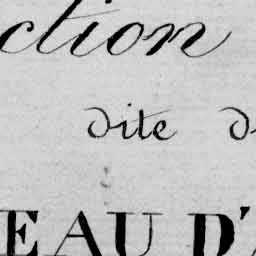 ction
dite d
EAU D'